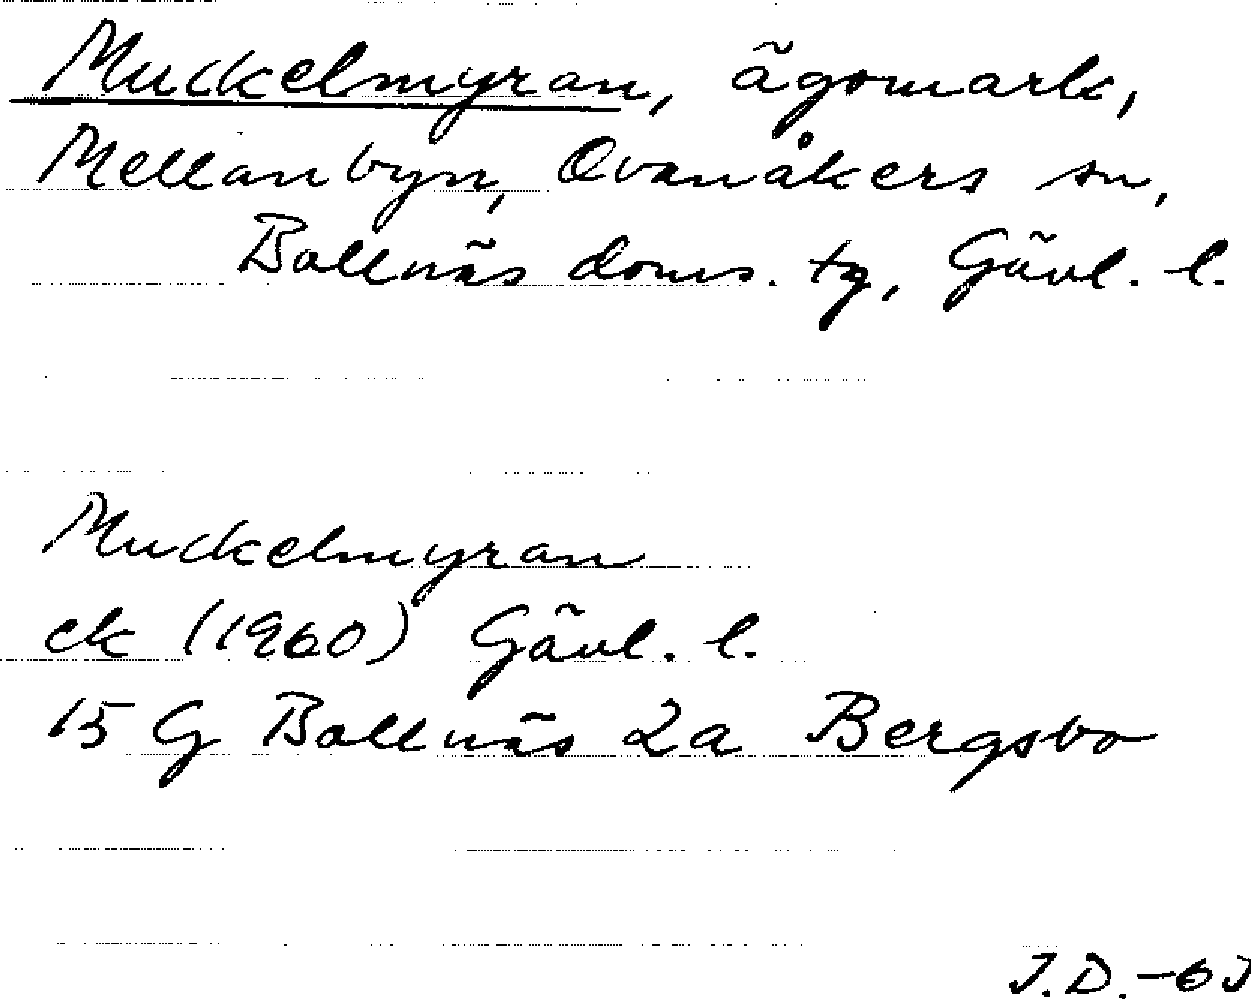 Muckelmyran, ägomark,
Mellanbyn, Ovanåkers sn,
Bollnäs doms. tg, Gävl. l.
Muckelmyran
ek (1960) Gävl. l.
15 G Bollnäs 2a Bergsbo
J.D.-63